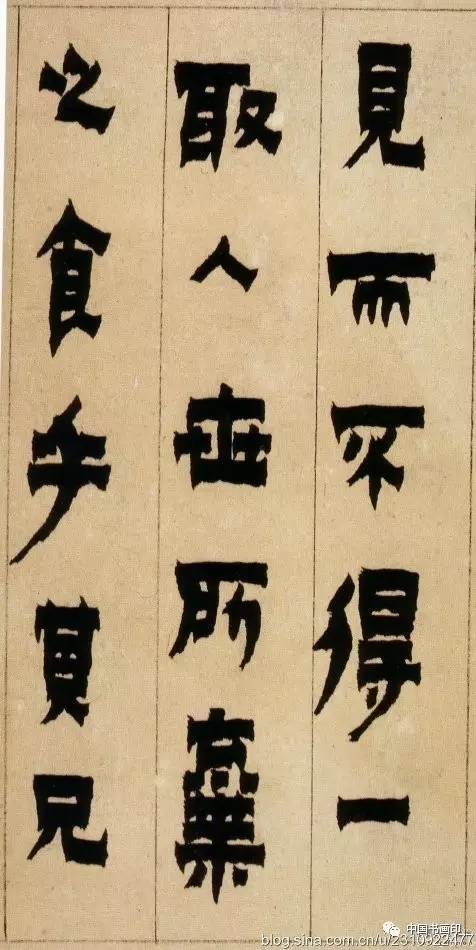 見而不得一
取人世所棄
之食乎 兄
中国书画印
blog.sina.com.cn/u/2310922477